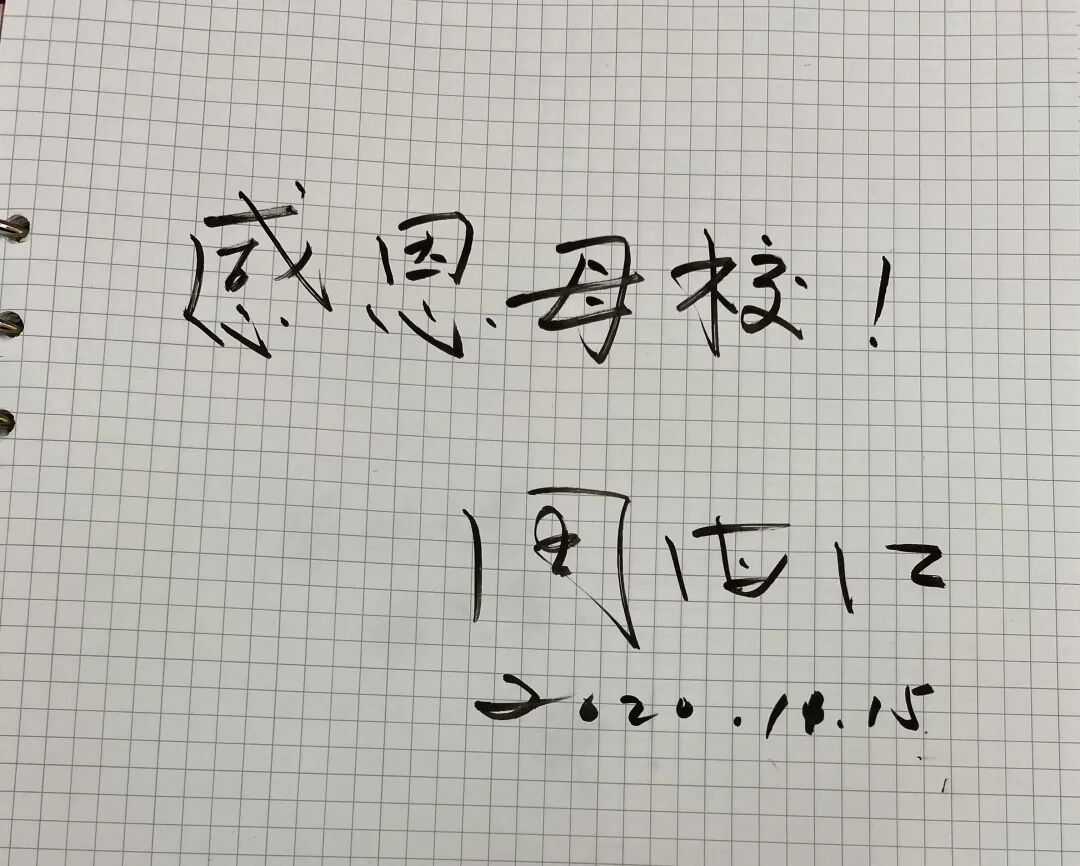 感恩母校！
周
2020.10.15